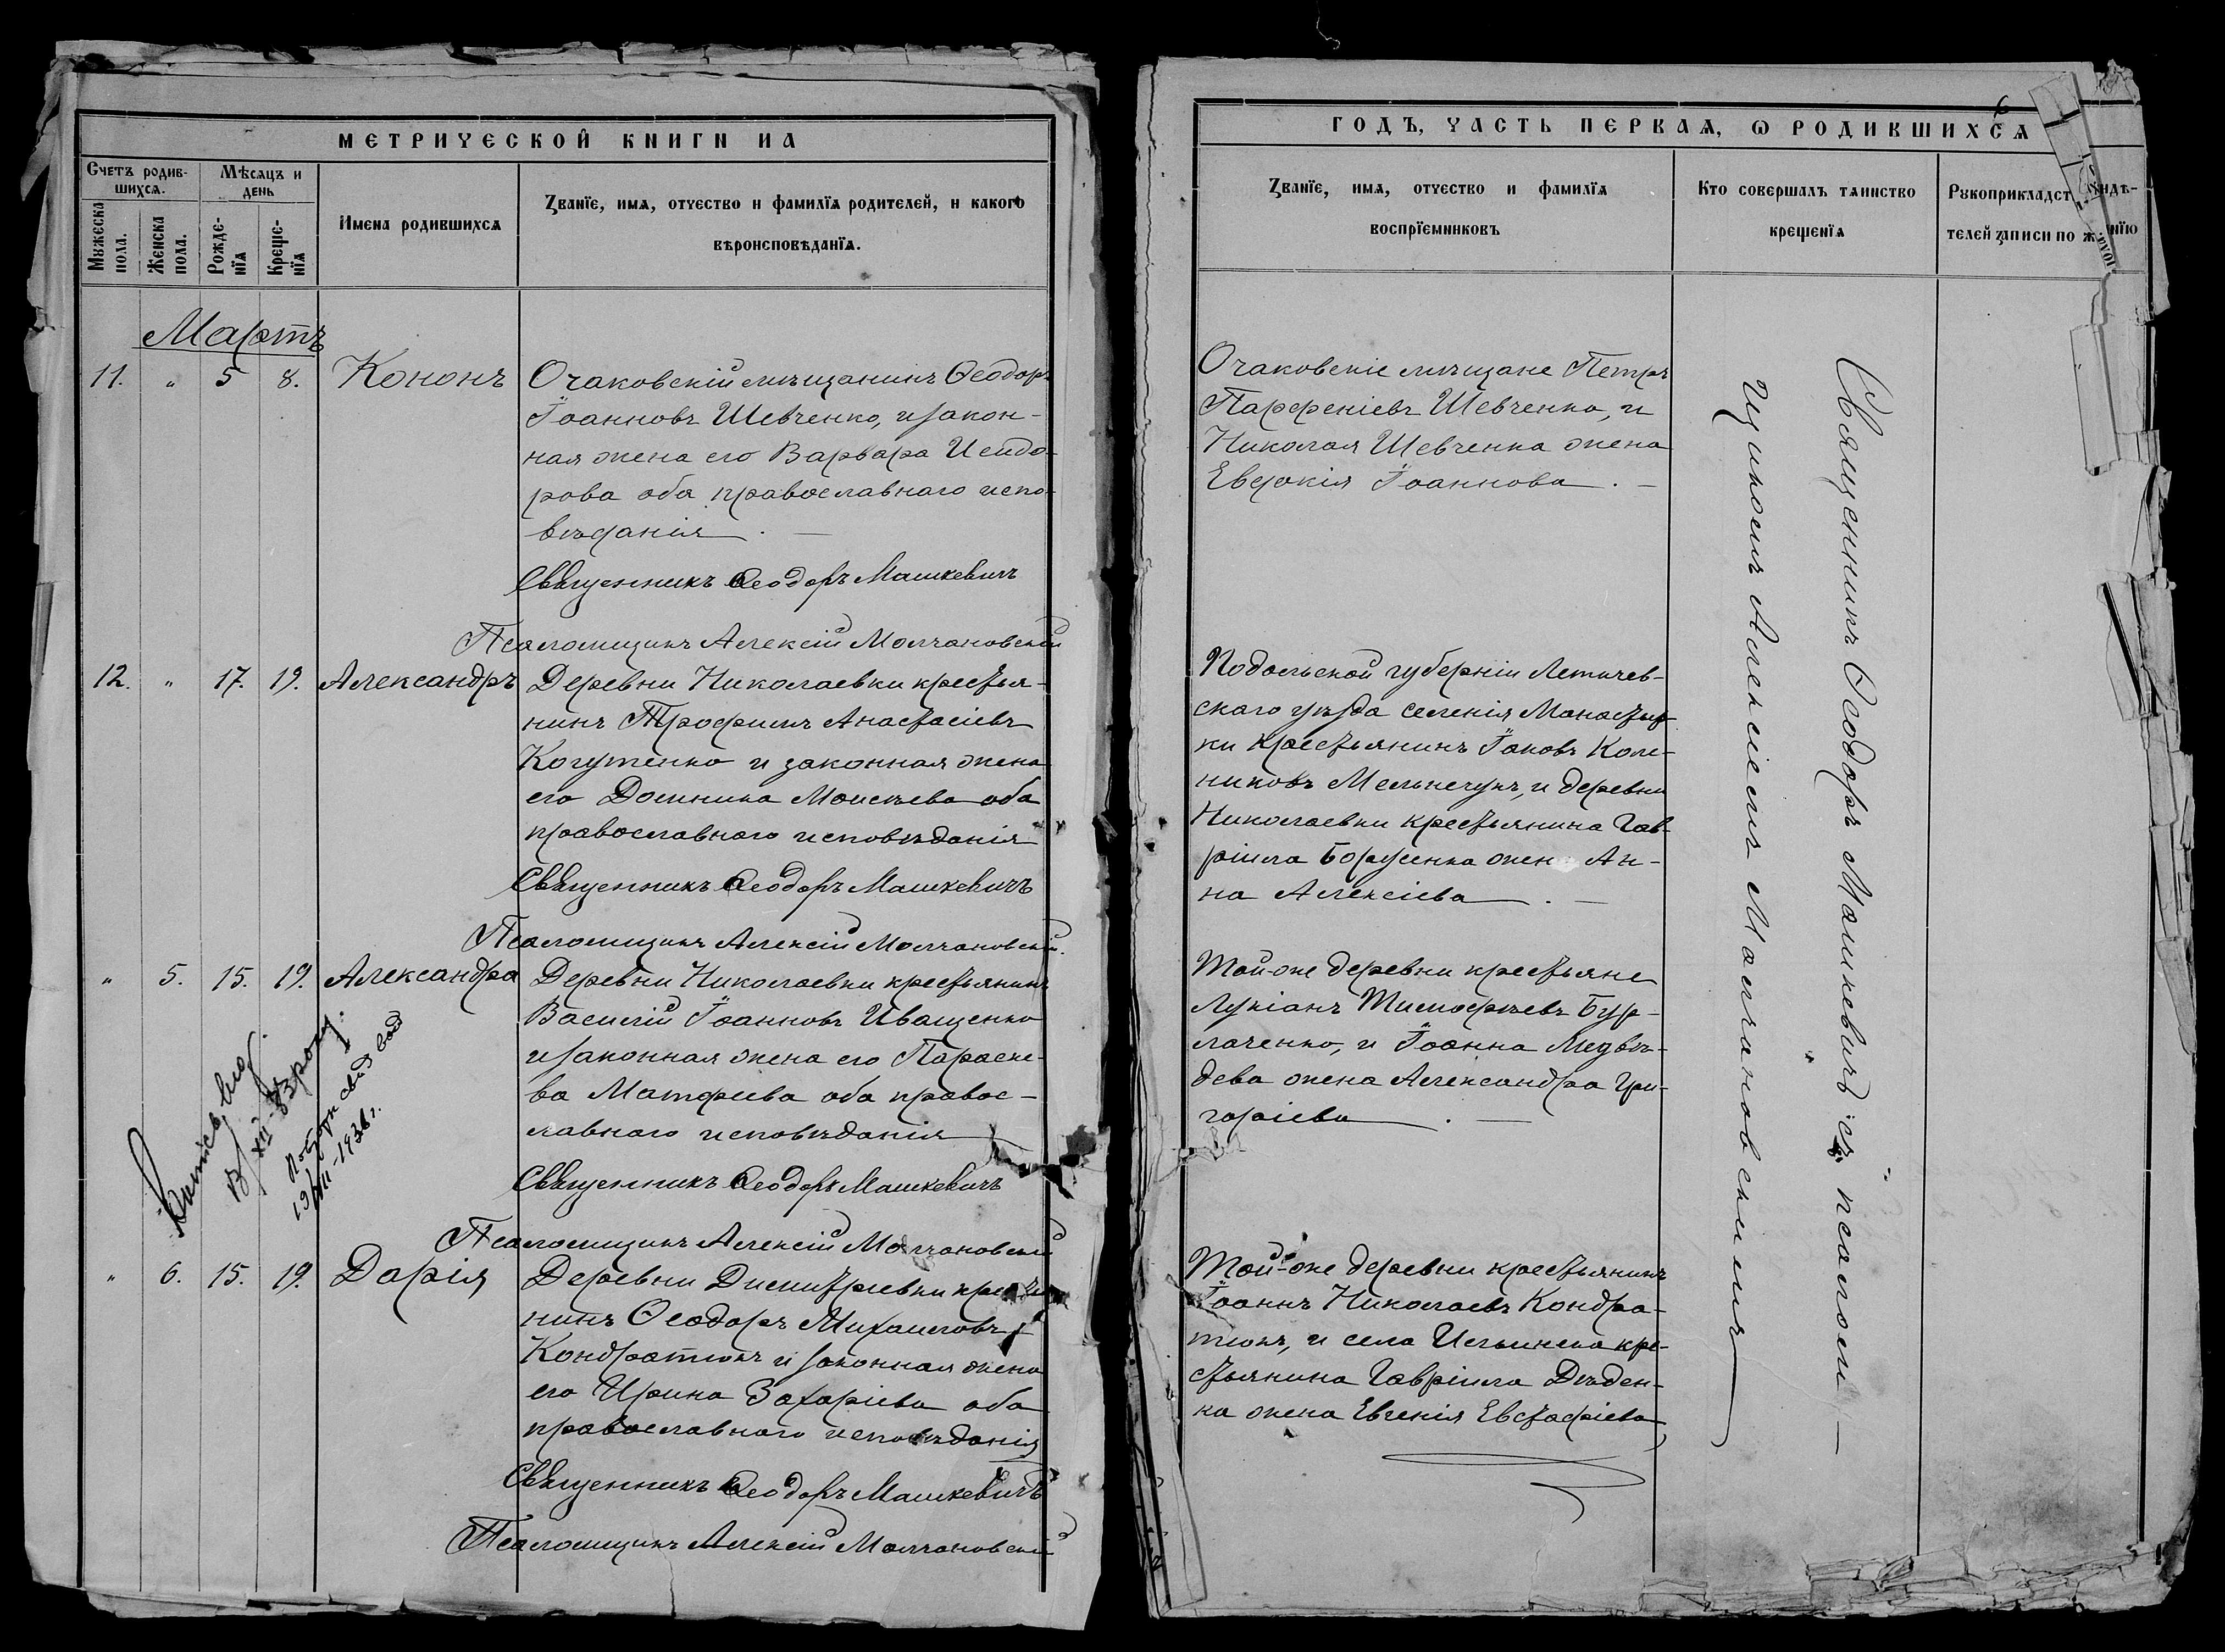 МЕТРИЧЕСКОЙ КНИГИ НА
Счетъ родив-
шихся.
Мѣсяцъ и
день
Мужеска
пола.
Женска
пола.
Рожде-
нїя
Креще-
нїя
Имена родившихся
Званїе, имя, отчество и фамилїя родителей, и какого
вѣроисповѣданїя.
Мартъ
11. " 5 8. Кононъ
Очаковскій мѣщанинъ Ѳеодоръ
Іоанновъ Шевченко, и закон-
ная жена его Варвара Исидо-
рова оба православнаго испо-
вѣданія. —
Священникъ Ѳеодоръ Машкевичъ
Псаломщикъ Алексій Молчановскій
12. " 17. 19. Александръ
Деревни Николаевки крестья-
нинъ Трофимъ Анастасіевъ
Когутенко и законная жена
его Домника Моисѣева оба
православнаго исповѣданія
Священникъ Ѳеодоръ Машкевичъ
Псаломщикъ Алексій Молчановскій.
" 5. 15. 19. Александра
Деревни Николаевки крестьянинъ
Василій Іоанновъ Иващенко
и законная жена его Параске-
ва Матфеева оба правос-
лавнаго исповѣданія
Священникъ Ѳеодоръ Машкевичъ
Псаломщикъ Алексій Молчановскій
1936 г.
" 6. 15. 19. Дарія
Деревни Димитріевки крестья-
нинъ Ѳеодоръ Михаиловъ
Кондратюкъ и законная жена
его Ирина Захаріева оба
православнаго исповѣданія
Священникъ Ѳеодоръ Машкевичъ
Псаломщикъ Алексій Молчановскій
6
ГОДЪ, ЧАСТЬ ПЕРВАЯ, Ѡ РОДИВШИХСЯ
Званїе, имя, отчество и фамилїя
воспрїемниковъ
Кто совершалъ таинство
крещенїя
Рукоприкладст
видѣ-
телей записи по ж
нїю
Очаковскіе мѣщане Петръ
Парфеніевъ Шевченко, и
Николая Шевченка жена
Евдокія Іоаннова. —
Подольской губерніи Летичев-
скаго уѣзда селенія Монастыр-
ки крестьянинъ Іаковъ
Мельнечукъ, и деревни
Николаевки крестьянина Гав-
ріила жена Ан-
на Алексіева. —
Той-же деревни крестьяне
Лукіанъ Тимофѣевъ Бур-
лаченко, и Іоанна Медвѣ-
дева жена Александра Гри-
горіева. —
Той-же деревни крестьянинъ
Іоаннъ Николаевъ Кондра-
тюкъ, и села Ильинска кре-
стьянина Гавріила Дѣден-
ка жена Евгенія Евстафіева
Священникъ Ѳеодоръ Машкевичъ съ псалом-
щикомъ Алексіемъ Молчановскимъ